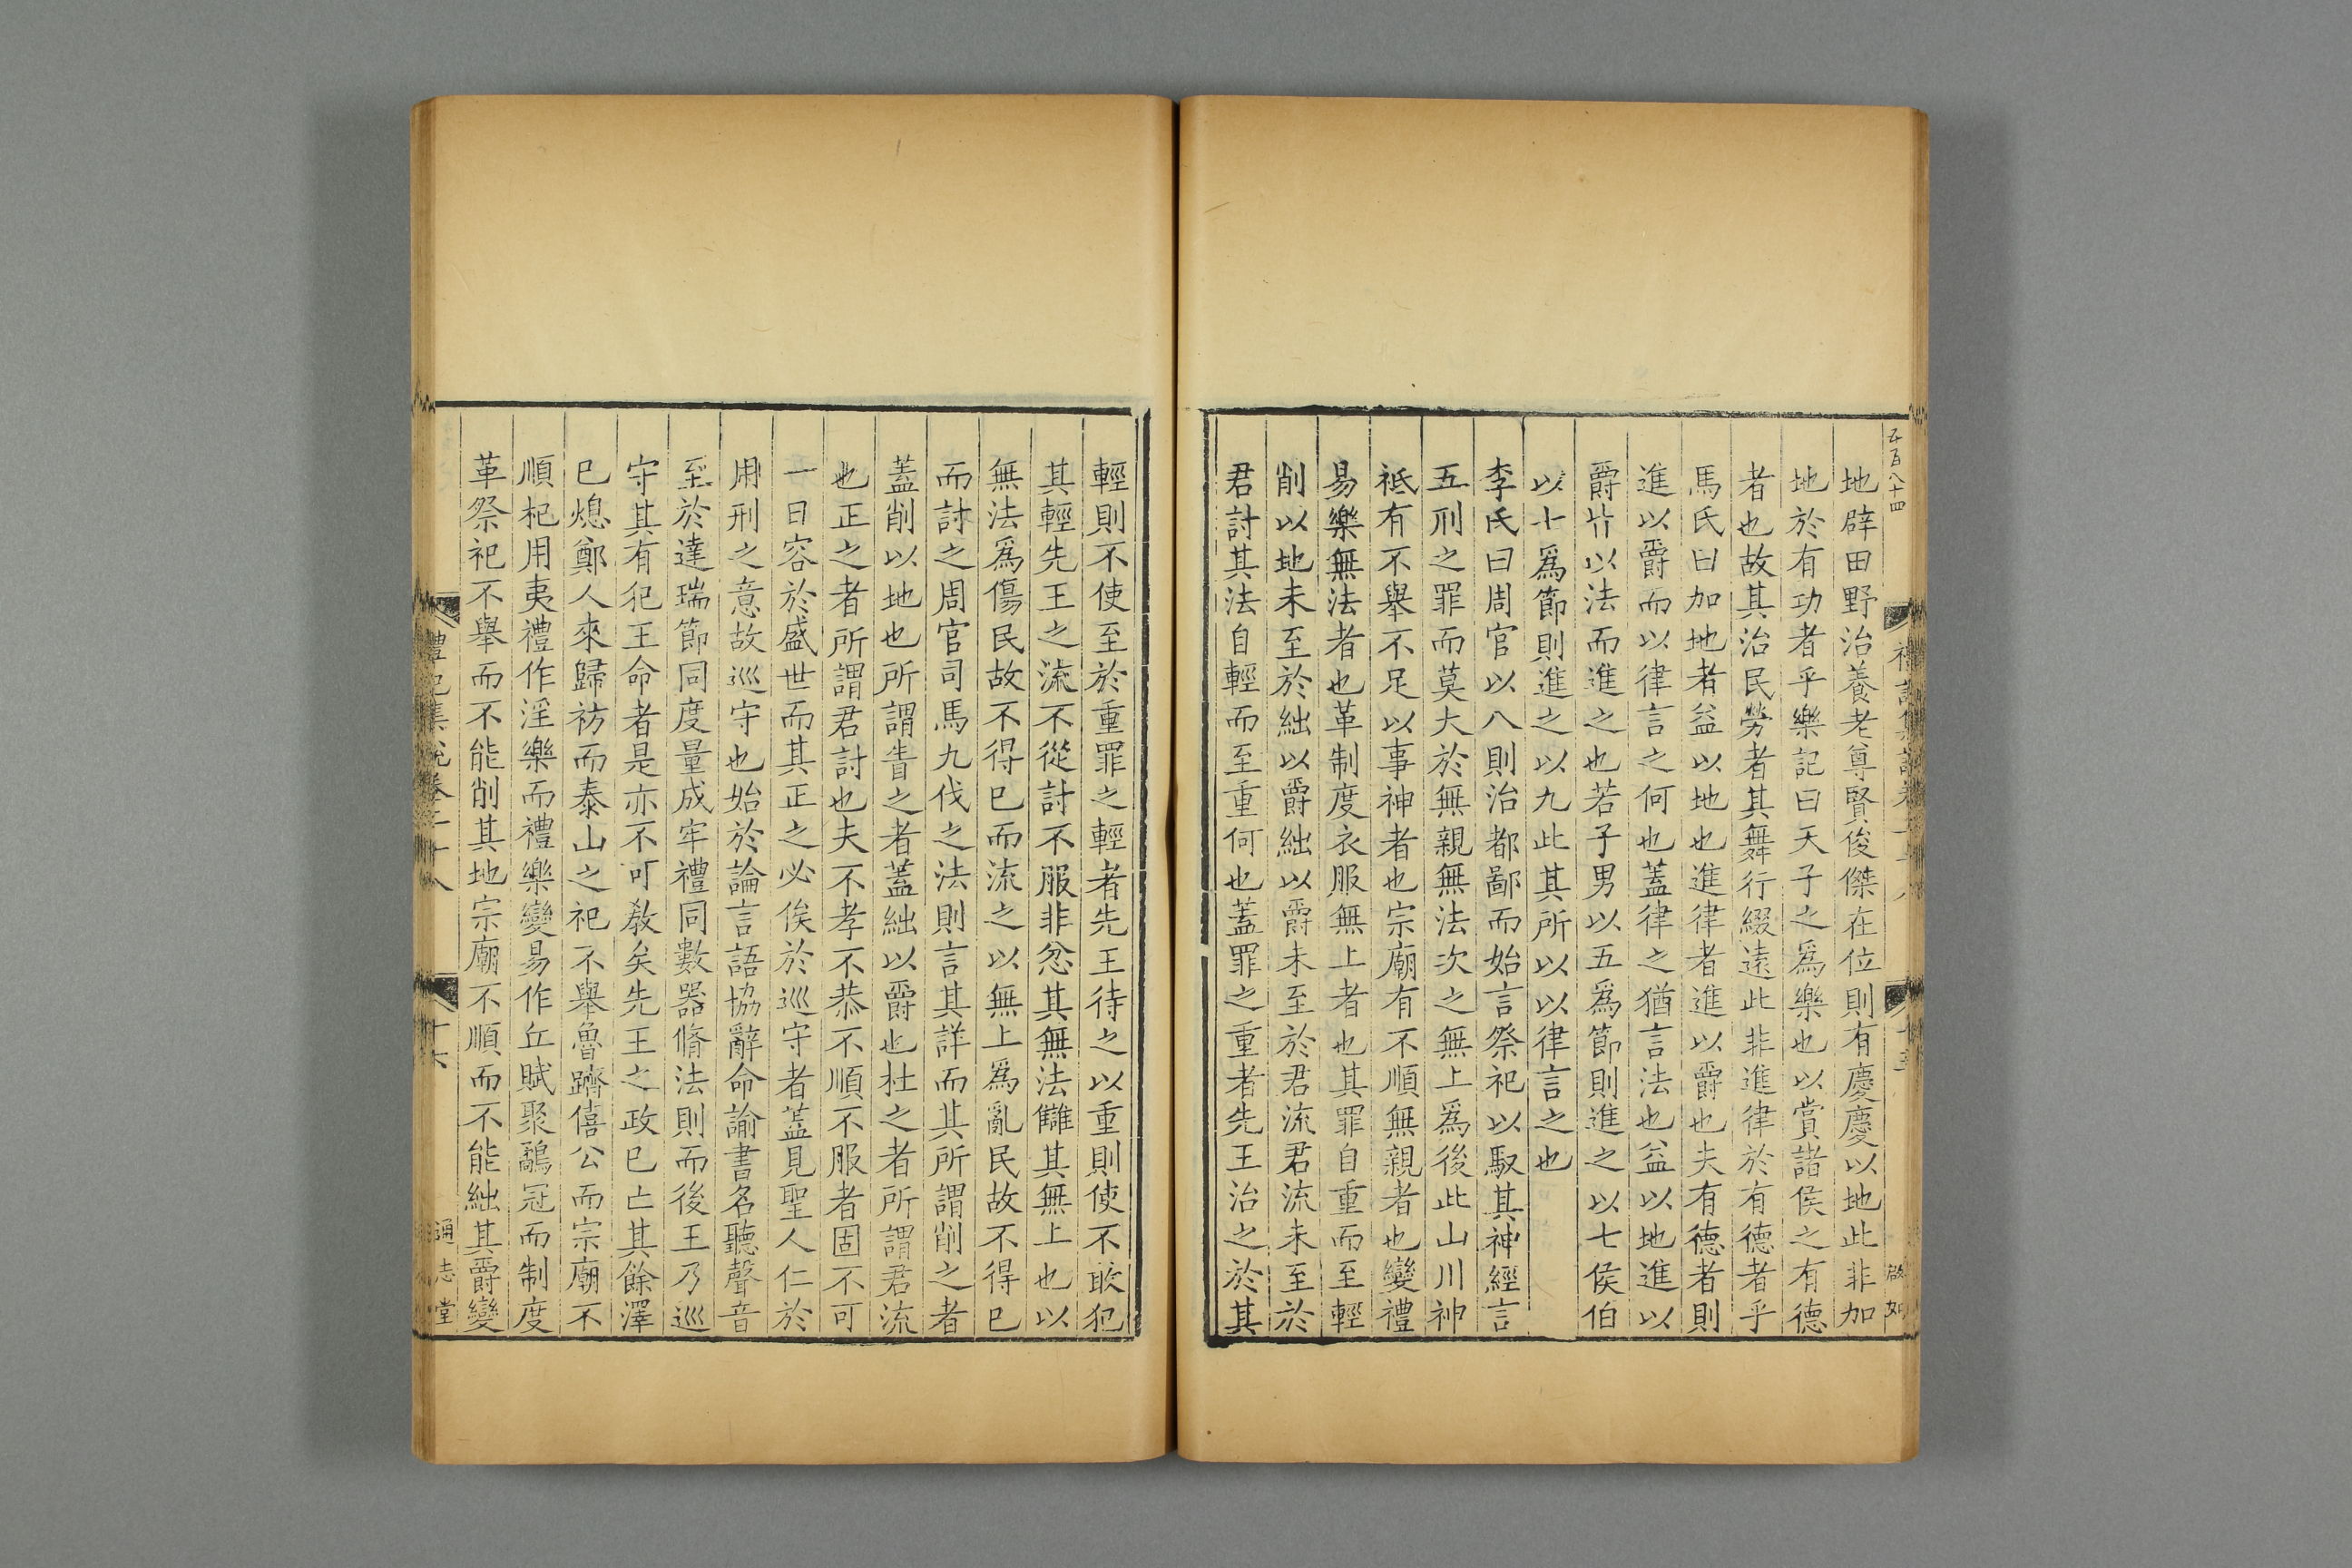 五百八十四
地辟田野治養老尊賢俊傑在位則有慶慶以地此非加
地於有功者乎樂記曰天子之爲樂也以賞諸侯之有德
者也故其治民勞者其舞行綴遠此非進律於有德者乎
馬氏曰加地者益以地也進律者進以爵也夫有德者則
進以爵而以律言之何也蓋律之猶言法也益以地進以
爵皆以法而進之也若子男以五爲節則進之以七侯伯
以七爲節則進之以九此其所以以律言之也
李氏曰周官以八則治都鄙而始言祭祀以馭其神經言
五刑之罪而莫大於無親無法次之無上爲後此山川神
祇有不舉不足以事神者也宗廟有不順無親者也變禮
易樂無法者也革制度衣服無上者也其罪自重而至輕
削以地未至於絀以爵絀以爵未至於君流君流未至於
君討其法自輕而至重何也蓋罪之重者先王治之於其
輕則不使至於重罪之輕者先王待之以重則使不敢犯
其輕先王之流不從討不服非忿其無法讎其無上也以
無法爲傷民故不得已而流之以無上爲亂民故不得已
而討之周官司馬九伐之法則言其詳而其所謂削之者
蓋削以地也所謂眚之者蓋絀以爵也杜之者所謂君流
也正之者所謂君討也夫不孝不恭不順不服者固不可
一日容於盛世而其正之必俟於巡守者蓋見聖人仁於
用刑之意故巡守也始於論言語協辭命諭書名聽聲音
至於達瑞節同度量成牢禮同數器脩法則而後王乃巡
守其有犯王命者是亦不可教矣先王之政已亡其餘澤
已熄鄭人來歸祊而泰山之祀不舉魯躋僖公而宗廟不
順杞用夷禮作淫樂而禮樂變易作丘賦聚鷸冠而制度
革祭祀不舉而不能削其地宗廟不順而不能絀其爵變
禮記集說卷二十八
十六
通志堂